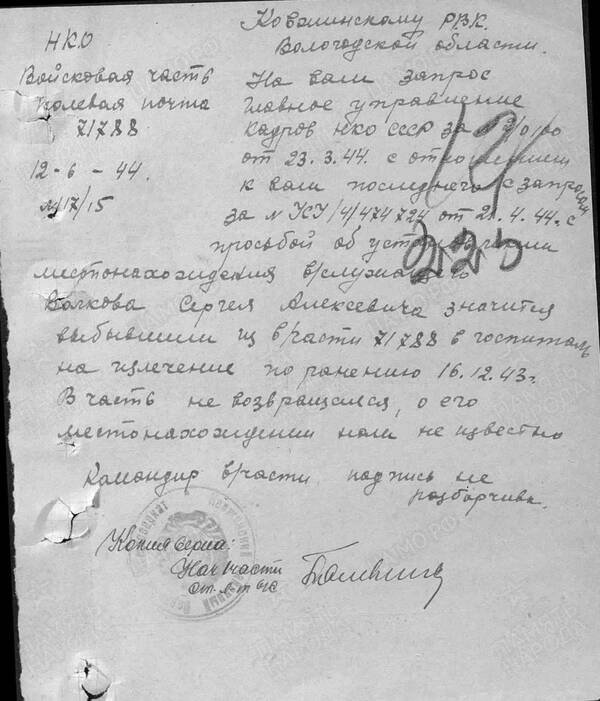 НКО
Войсковая часть
полевая почта
71788
12-6-44.
№17/15
РВК.
Вологодской области.
На ваш запрос
Главное управление
кадров НКО СССР за №
от 23.3.44. с отношением
к вам последнего с запросом
за № УСУ/4/474724 от 21.4.44. с
просьбой об установлении
местонахождения в/служащего
Волкова Сергея Алексевича значится
выбывшим из в/части 71788 в госпиталь
на излечение по ранению 16.12.43г.
В часть не возвращался, о его
местонахождении нам не известно
Командир в/части подпись не
разборчива.
Копия верна:
Нач 1 части